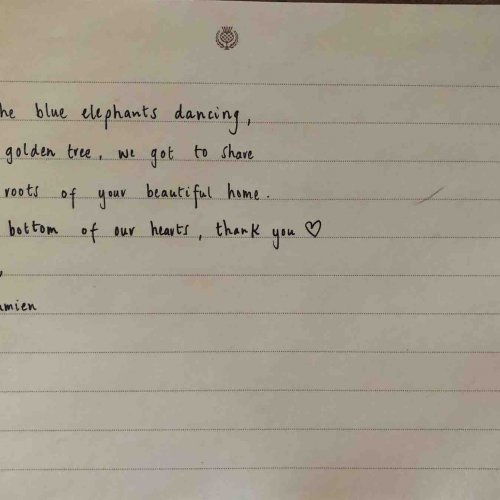 he blue elephants dancing,
golden tree, we got to share
roots of your beautiful home.
bottom of our hearts, thank you ♡
,
mien